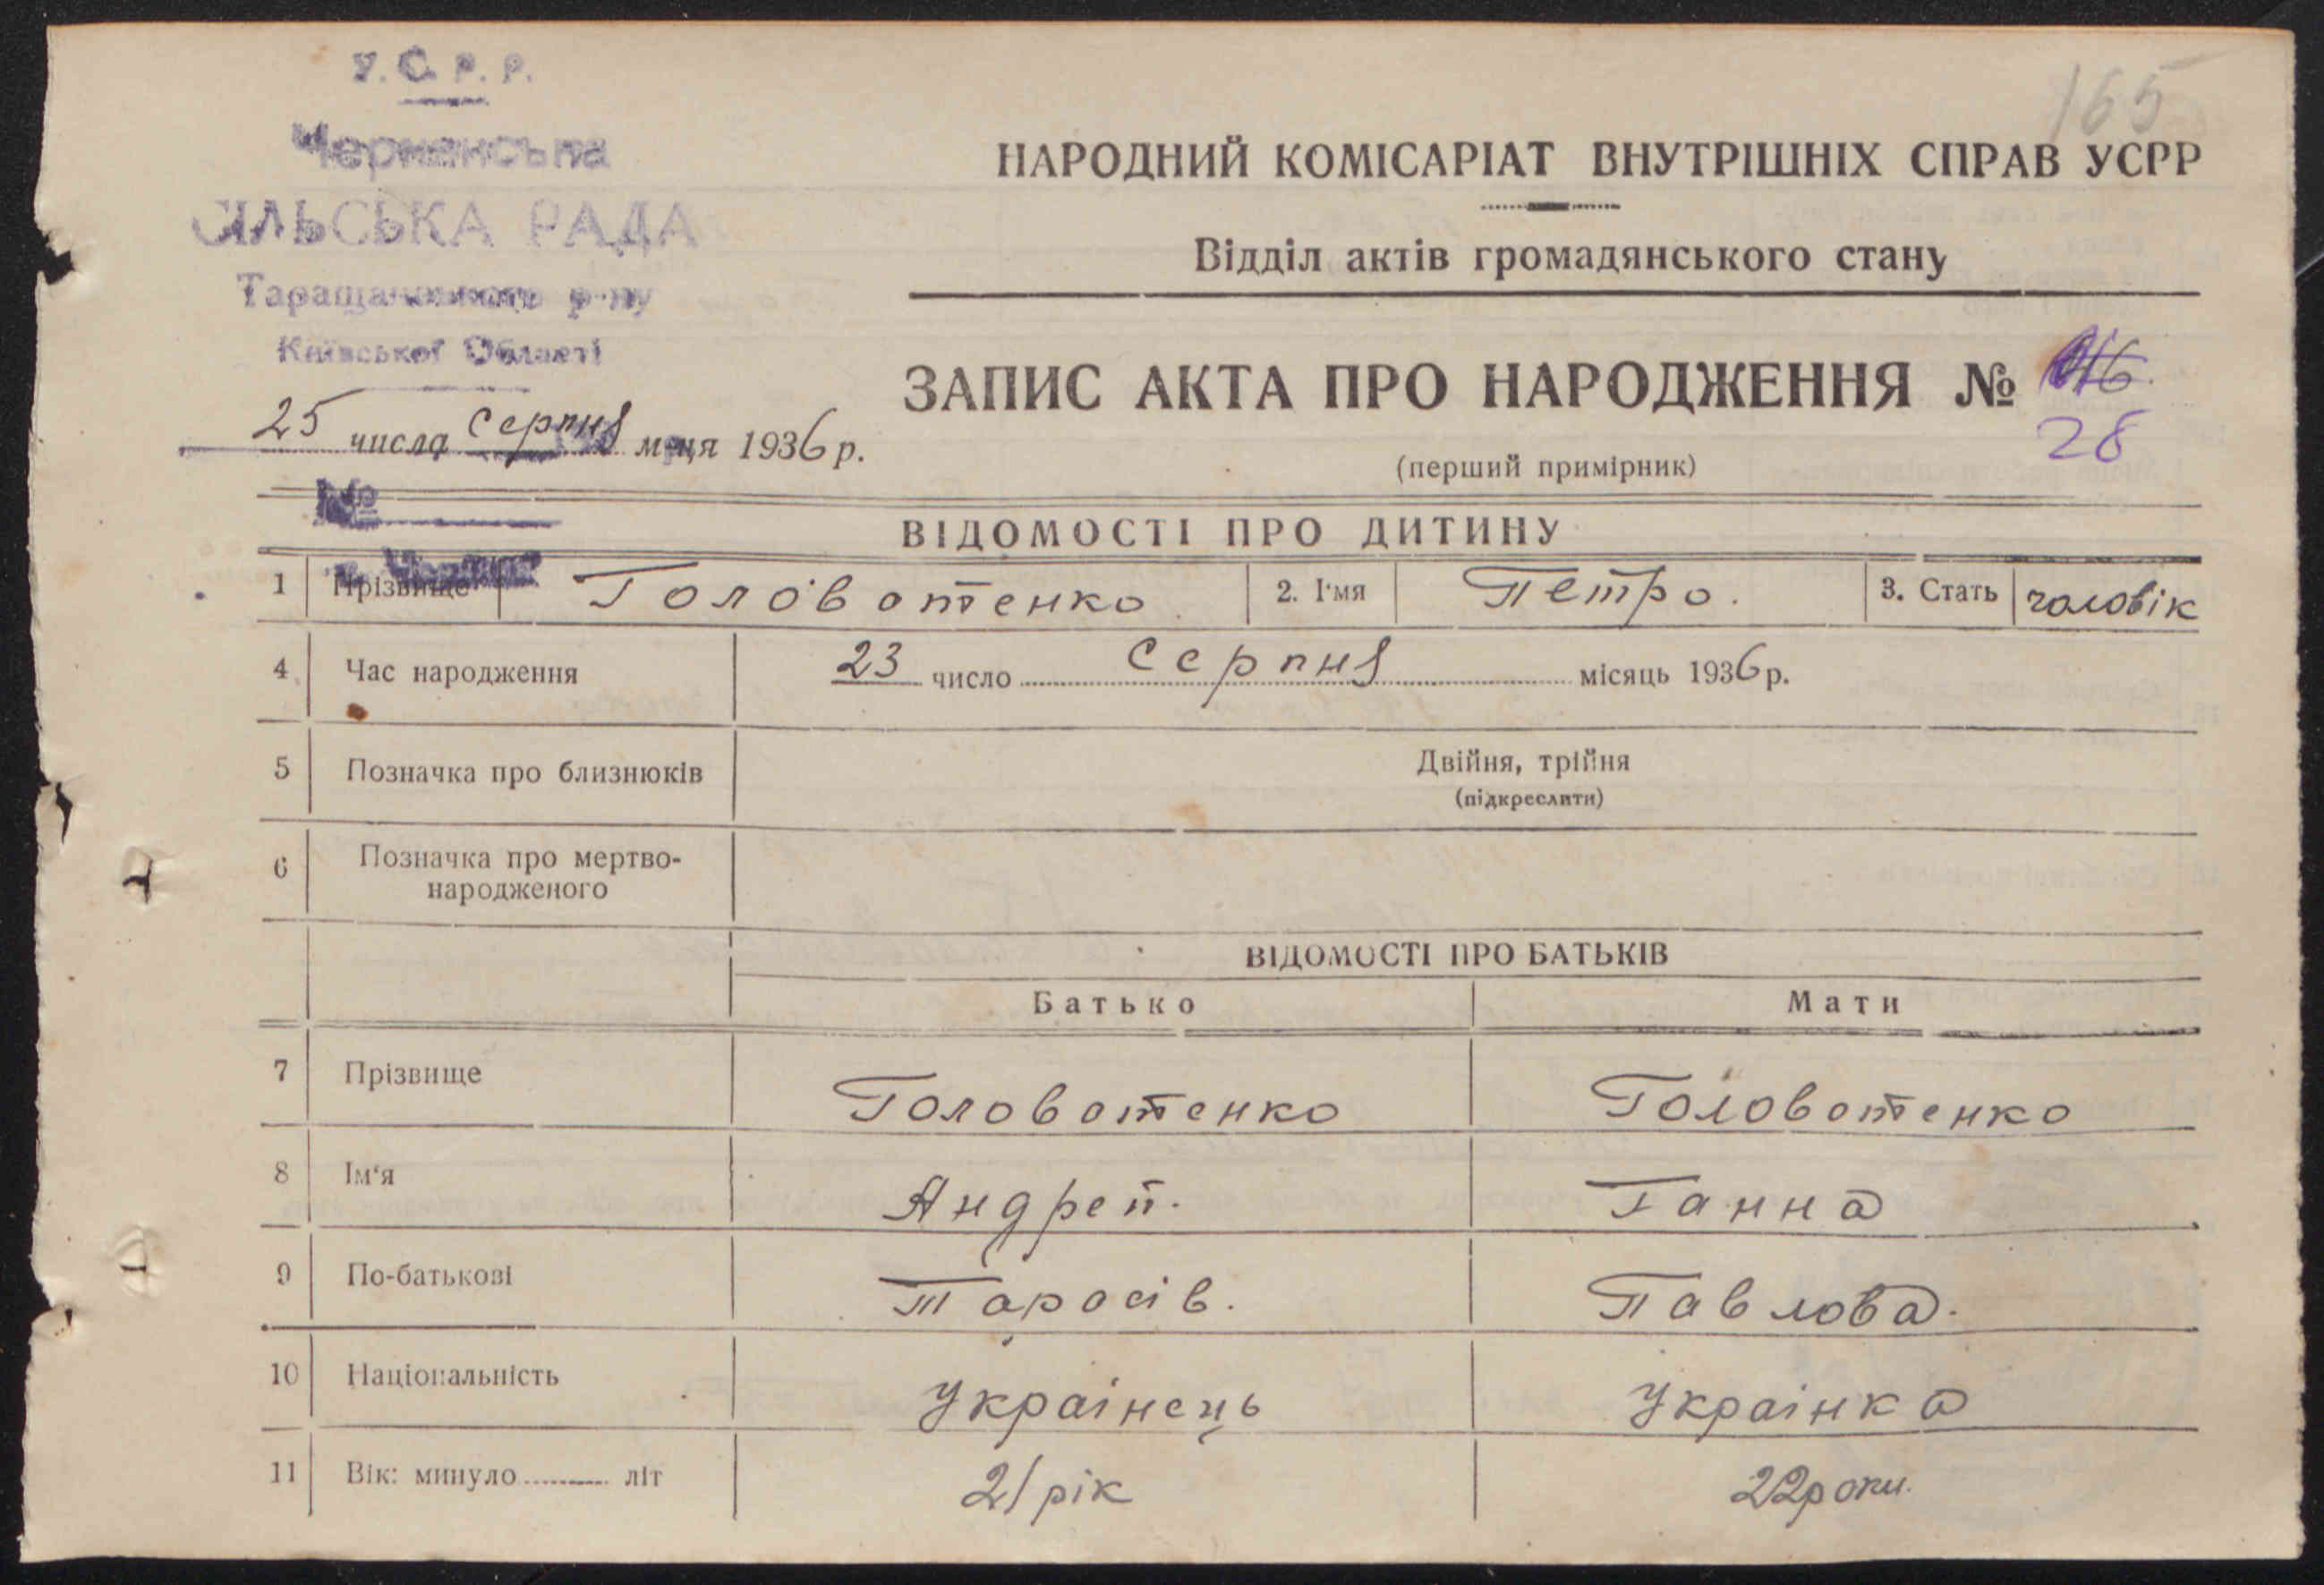 У. С. Р. Р.
165
СІЛЬСЬКА РАДА
Таращанського р-ну
Київської Області
НАРОДНИЙ КОМІСАРІАТ ВНУТРІШНІХ СПРАВ УСРР
Відділ актів громадянського стану
25 числа серпня м-ця 1936 р.
ЗАПИС АКТА ПРО НАРОДЖЕННЯ №
28
(перший примірник)
№
ВІДОМОСТІ ПРО ДИТИНУ
1 Прізвище Головатенко 2. І'мя Петро. 3. Стать чоловік
4 Час народження 23 число Серпня місяць 1936 р.
5 Позначка про близнюків Двійня, трійня
(підкреслити)
6 Позначка про мертво-
народженого
ВІДОМОСТІ ПРО БАТЬКІВ
Батько Мати
7 Прізвище Головатенко Головатенко
8 Ім'я Андрей. Ганна
9 По-батькові Тарасів. Павлова.
10 Національність Українець Українка
11 Вік: минуло ......... літ 21 рік 22 роки.